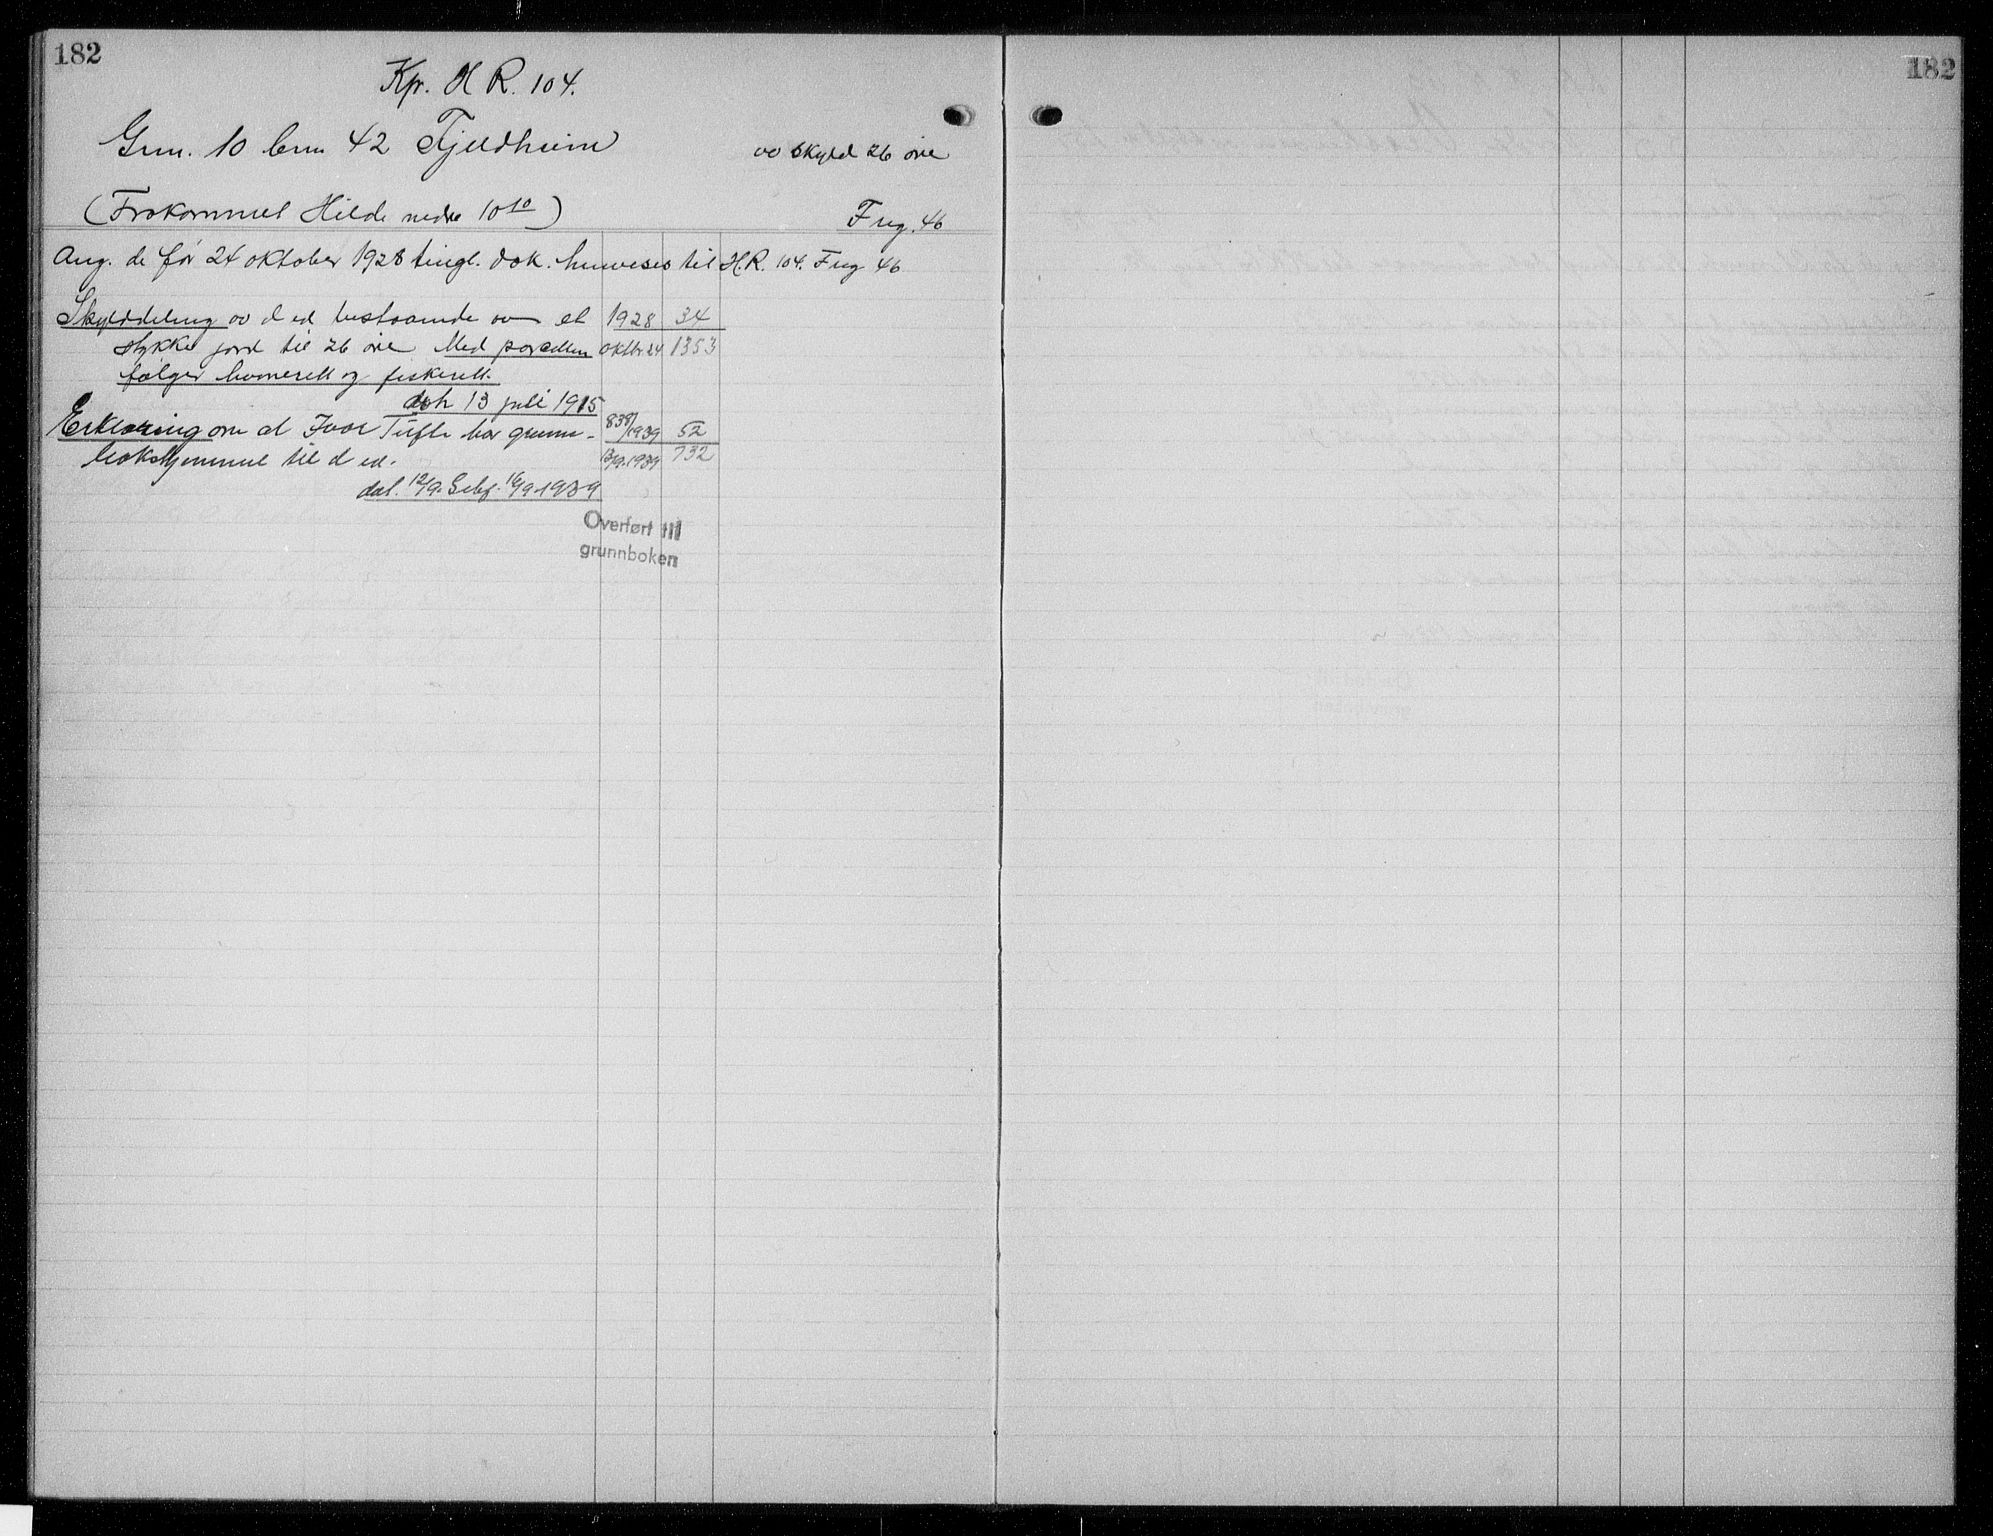 182
Kp. H R. 104.
Gnr. 10 bnr 42 Fjeldheim av skyld 26 øre
(Frakommet Hilde nedre 10 10) Frig. 46
Ang. de før 24 oktober 1928 tingl. dok. henvises til H.R. 104. Frig 46
Skylddeling av d ed bestaaende av et 1928 34
stykke jord til 26 øre. Med parcellen oktbr 24 1353
følger havnerett og fiskerett.
dat 13 juli 1915
Erklæring om at Ivar Tufte har grunn- 838/1939 52
bokshjemmel til d ed. 13/9.1939 732
dat. 12/9. 16/9-1939
Overført til
grunnboken
182